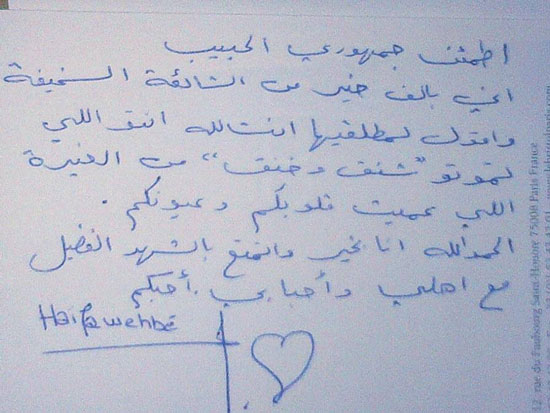 اطمئن جمهوري الحبيب
اني بالف خير من الشائعة السخيفة
واقول لمطلقيها انشالله انتو اللي
تموتو "شنق وخنق" من الغيرة
اللي عميت قلوبكم وعيونكم.
الحمدالله انا بخير واتمتع بالشهر الفضيل
مع اهلي وأحبابي. أحبكم
Haifa wehbé
12, rue du Faubourg Saint-Honoré 75008 Paris France